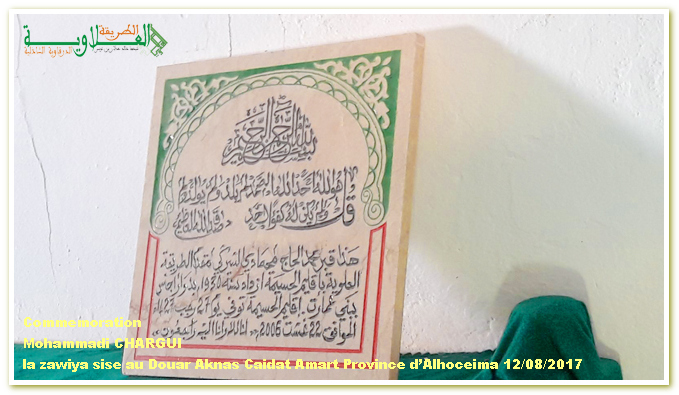 الطريقة
العلاوية
الدرقاوية الشاذلية
بسم الله الرحمن الرحيم
قل هو الله أحد الله الصمد لم يلد ولم يولد
ولم يكن له كفؤا أحد صدق الله العظيم
هذا قبر محمد الحاج محمادي الشركي مقدم الطريقة
العلوية بإقليم الحسيمة ازداد سنة 1930 بدوار
بني عمارت إقليم الحسيمة توفي يوم 27 رجب
الموافق 22 غشت 2006 «إنا لله وإنا إليه راجعون»
Commemoration
Mohammadi CHARGUI
la zawiya sise au Douar Aknas Caidat Amart Province d'Alhoceima 12/08/2017